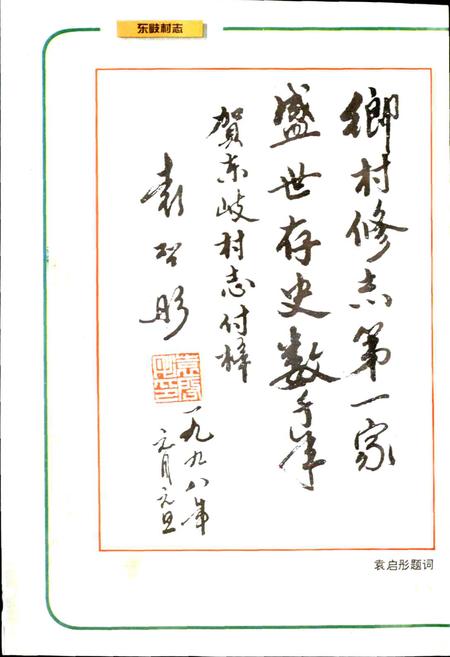 东岐村志
鄉村修志第一家
盛世存史數千年
賀东岐村志付梓
袁啓彤
一九九八年
元月元旦
袁启彤题词